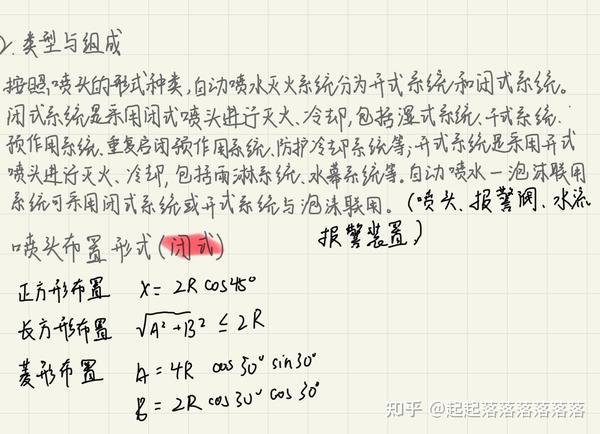 2.类型与组成
按照喷头的形式种类,自动喷水灭火系统分为开式系统和闭式系统。
闭式系统是采用闭式喷头进行灭火、冷却,包括湿式系统、干式系统、
预作用系统、重复启闭预作用系统、防护冷却系统等;开式系统是采用开式
喷头进行灭火、冷却,包括雨淋系统、水幕系统等。自动喷水一泡沫联用
系统可采用闭式系统或开式系统与泡沫联用。(喷头、报警阀、水流
报警装置)
喷头布置形式(闭式)
正方形布置 X=2R cos45°
长方形布置 √A²+B² ≤ 2R
菱形布置 A=4R cos30° sin30°
B=2R cos30° cos30°
知乎 @起起落落落落落落